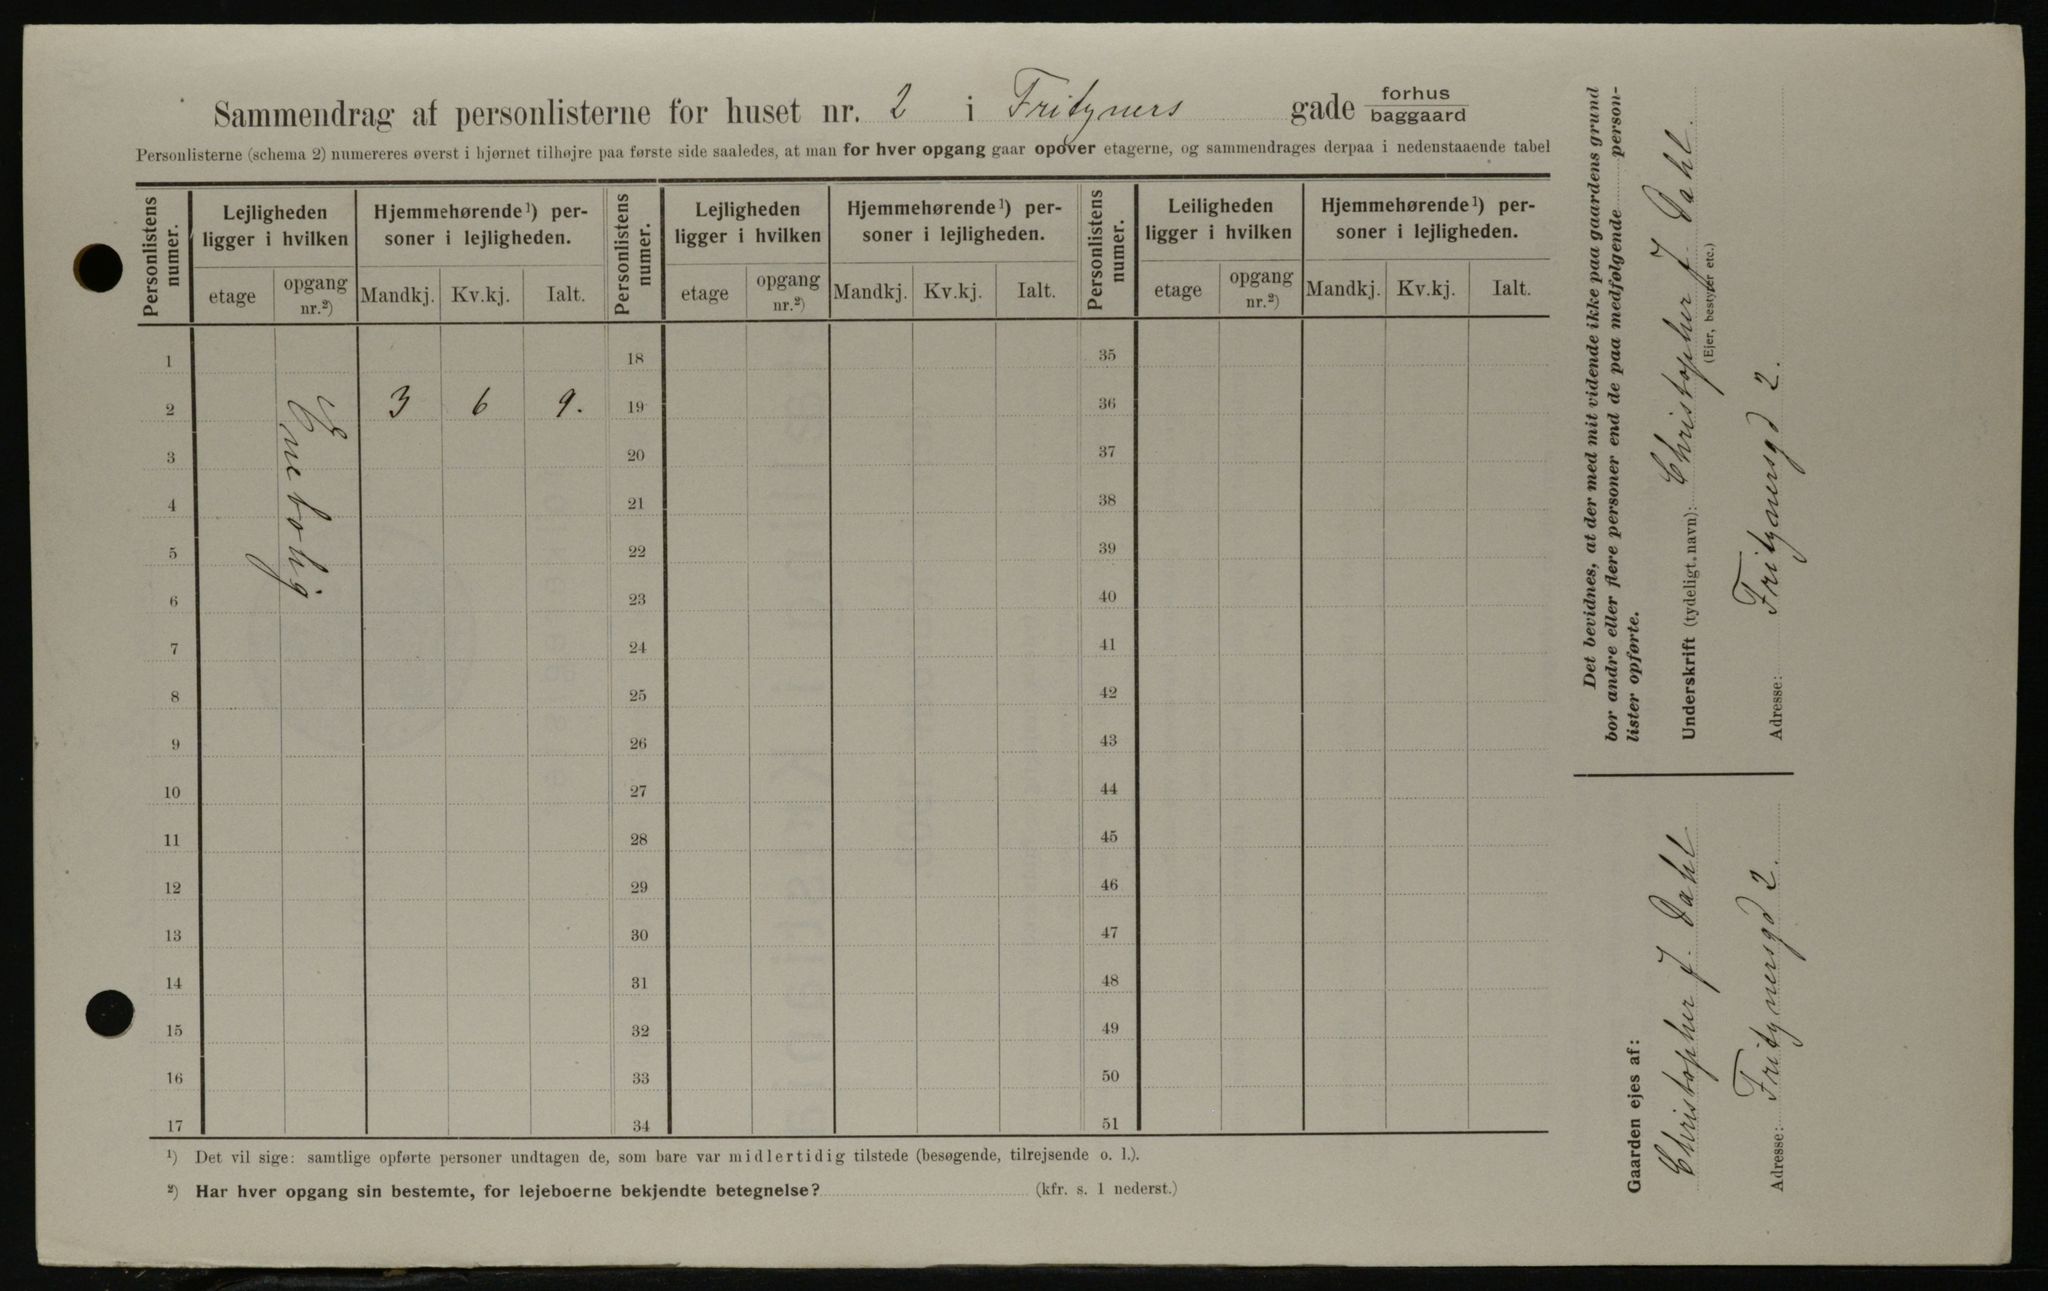 Sammendrag af personlisterne for huset nr. 2 i Fritzners gade forhus
baggaard
Personlisterne (schema 2) numereres øverst i hjørnet tilhøjre paa første side saaledes, at man for hver opgang gaar opover etagerne, og sammendrages derpaa i nedenstaaende tabel
Personlistens numer. Lejligheden ligger i hvilken Hjemmehørende¹) personer i lejligheden. Personlistens numer. Lejligheden ligger i hvilken Hjemmehørende¹) personer i lejligheden. Personlistens numer. Leiligheden ligger i hvilken Hjemmehørende¹) personer i lejligheden.
etage opgang nr.²) Mandkj. Kv.kj. Ialt. etage opgang nr.²) Mandkj. Kv.kj. Ialt. etage opgang nr.²) Mandkj. Kv.kj. Ialt.
1 18 35
2 3 6 9. 19 36
Enebolig
3 20 37
4 21 38
5 22 39
6 23 40
7 24 41
8 25 42
9 26 43
10 27 44
11 28 45
12 29 46
13 30 47
14 31 48
15 32 49
16 33 50
17 34 51
¹) Det vil sige: samtlige opførte personer undtagen de, som bare var midlertidig tilstede (besøgende, tilrejsende o. l.).
²) Har hver opgang sin bestemte, for lejeboerne bekjendte betegnelse? (kfr. s. 1 nederst.)
Det bevidnes, at der med mit vidende ikke paa gaardens grund
bor andre eller flere personer end de paa medfølgende person-
lister opførte.
Underskrift (tydeligt, navn): Christopher J. Dahl.
(Ejer, bestyrer etc.)
Adresse: Fritznersgd 2.
Gaarden ejes af:
Christopher J. Dahl
Adresse: Fritznersgd 2.